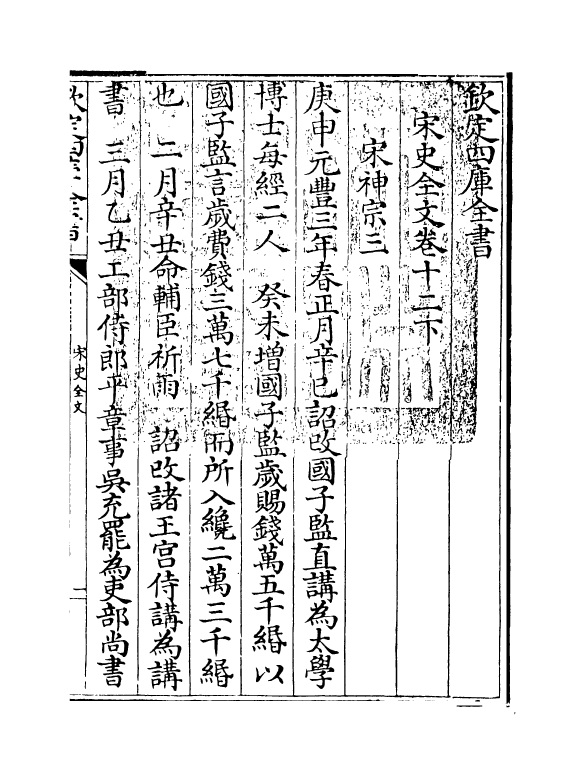 欽定四庫全書
宋史全文卷十二下
宋神宗三
庚申元豐三年春正月辛巳詔改國子監直講為太學
博士每經二人　癸未增國子監歲賜錢萬五千緡以
國子監言歲費錢三萬七千緡而所入纔二萬三千緡
也　二月辛丑命輔臣祈雨　詔改諸王宫侍講為講
書　三月乙丑工部侍郎平章事吳充罷為吏部尚書
欽定四庫全書
宋史全文